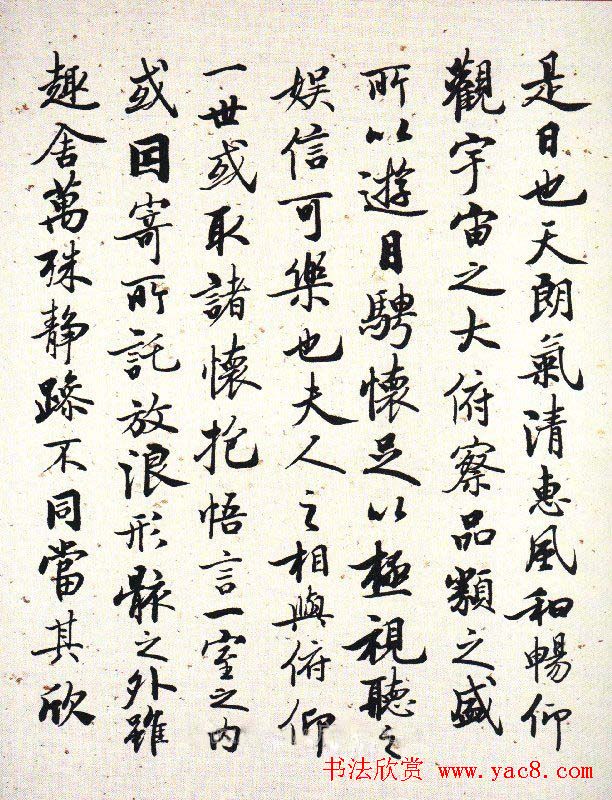 是日也天朗氣清惠風和暢仰
觀宇宙之大俯察品類之盛
所以遊目騁懷足以極視聽之
娱信可樂也夫人之相與俯仰
一世或取諸懷抱悟言一室之内
或因寄所託放浪形骸之外雖
趣舍萬殊静躁不同當其欣
书法欣赏 www.yac8.com